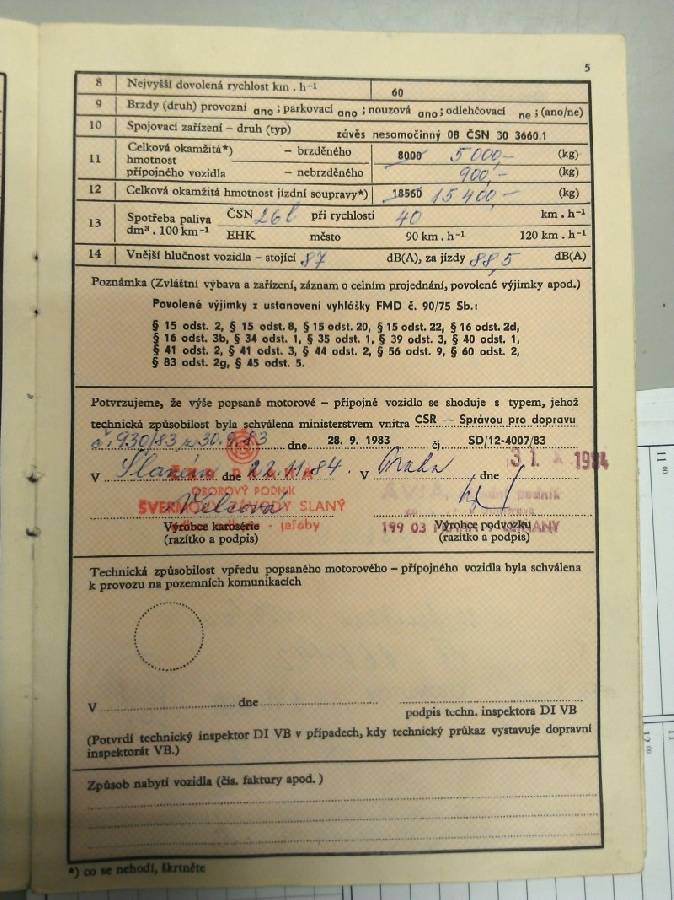 5
8 Nejvyšší dovolená rychlost km . h⁻¹ 60
9 Brzdy (druh) provozní ano; parkovací ano; nouzová ano; odlehčovací ne; (ano/ne)
10 Spojovací zařízení – druh (typ) závěs nesamočinný 0B ČSN 30 3660.1
11 Celková okamžitá*) – brzděného 8000 5000,- (kg)
hmotnost
přípojného vozidla – nebrzděného 900,- (kg)
12 Celková okamžitá hmotnost jízdní soupravy*) 18560 15 400,- (kg)
13 Spotřeba paliva ČSN 26 l při rychlosti 40 km . h⁻¹
dm³ . 100 km⁻¹ EHK město 90 km . h⁻¹ 120 km . h⁻¹
14 Vnější hlučnost vozidla – stojící 87 dB(A), za jízdy 88,5 dB(A)
Poznámka (Zvláštní výbava a zařízení, záznam o celním projednání, povolené výjimky apod.)
Povolené výjimky z ustanovení vyhlášky FMD č. 90/75 Sb.:
§ 15 odst. 2, § 15 odst. 8, § 15 odst. 20, § 15 odst. 22, § 16 odst. 2d,
§ 16 odst. 3b, § 34 odst. 1, § 35 odst. 1, § 39 odst. 3, § 40 odst. 1,
§ 41 odst. 2, § 41 odst. 3, § 44 odst. 2, § 56 odst. 9, § 60 odst. 2,
§ 83 odst. 2g, § 45 odst. 5.
Potvrzujeme, že výše popsané motorové – přípojné vozidlo se shoduje s typem, jehož
technická způsobilost byla schválena ministerstvem vnitra ČSR – Správou pro dopravu
č. 930/83 z 30.9.83 dne 28. 9. 1983 čj SD/12-4007/83
V Slaném dne 22.11.84. V Praha dne 31. 1984
OBOROVÝ PODNIK
ŠVERMOVY ZÁVODY SLANÝ
- jeřáby
199 03
Výrobce karosérie Výrobce podvozku
(razítko a podpis) (razítko a podpis)
Technická způsobilost vpředu popsaného motorového – přípojného vozidla byla schválena
k provozu na pozemních komunikacích
V dne
podpis techn. inspektora DI VB
(Potvrdí technický inspektor DI VB v případech, kdy technický průkaz vystavuje dopravní
inspektorát VB.)
Způsob nabytí vozidla (čís. faktury apod.)
*) co se nehodí, škrtněte